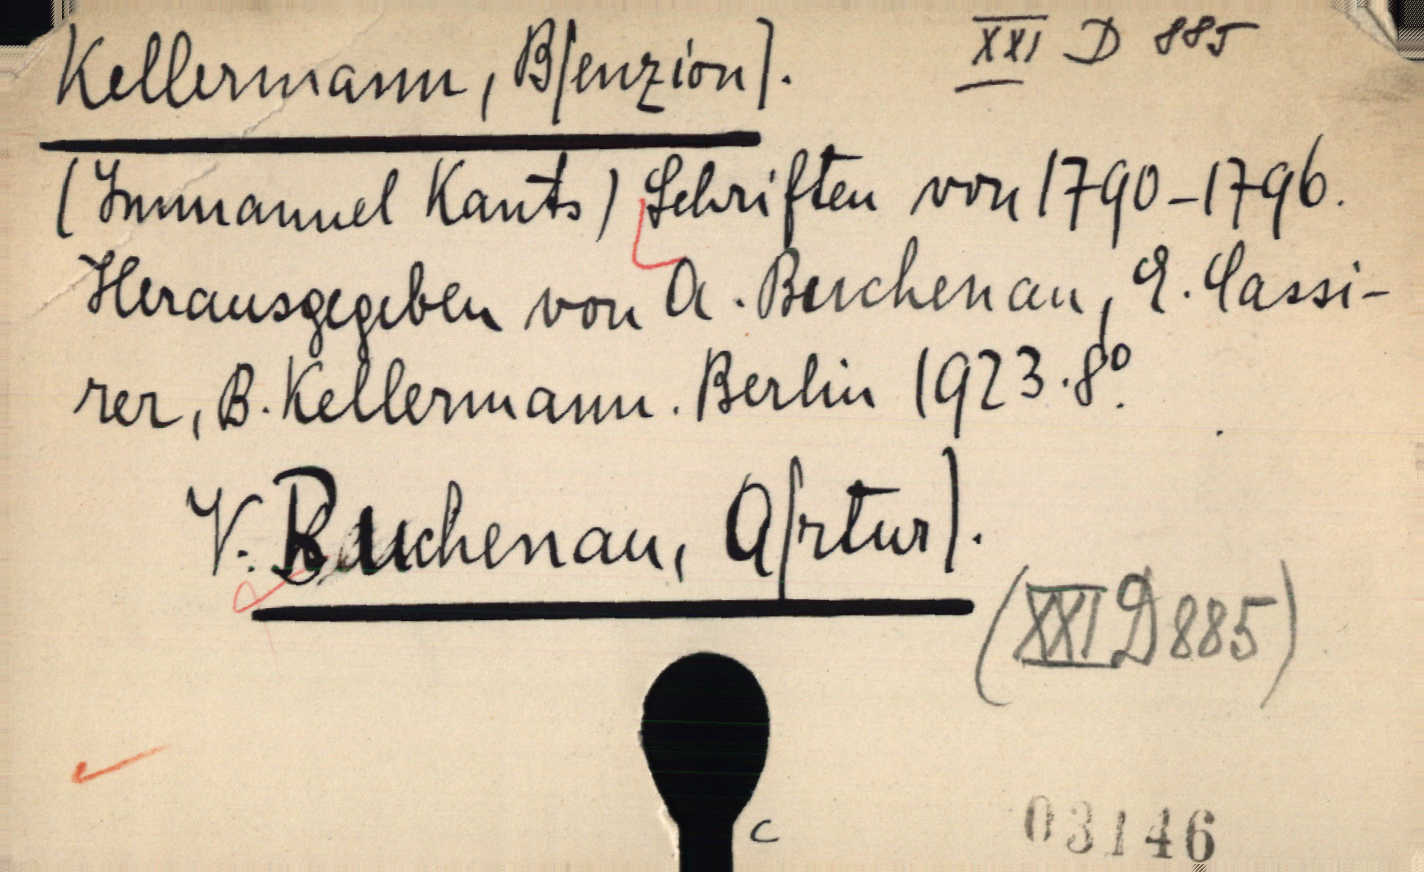 Kellermann, B[enzion]. XXI D 885
(Immanuel Kants) Schriften von 1790-1796.
Herausgegeben von A. Buchenau, E. Cassi-
rer, B. Kellermann. Berlin 1923. 8°.
V. Buchenau, A[rtur].
(XXI D 885)
c
03146